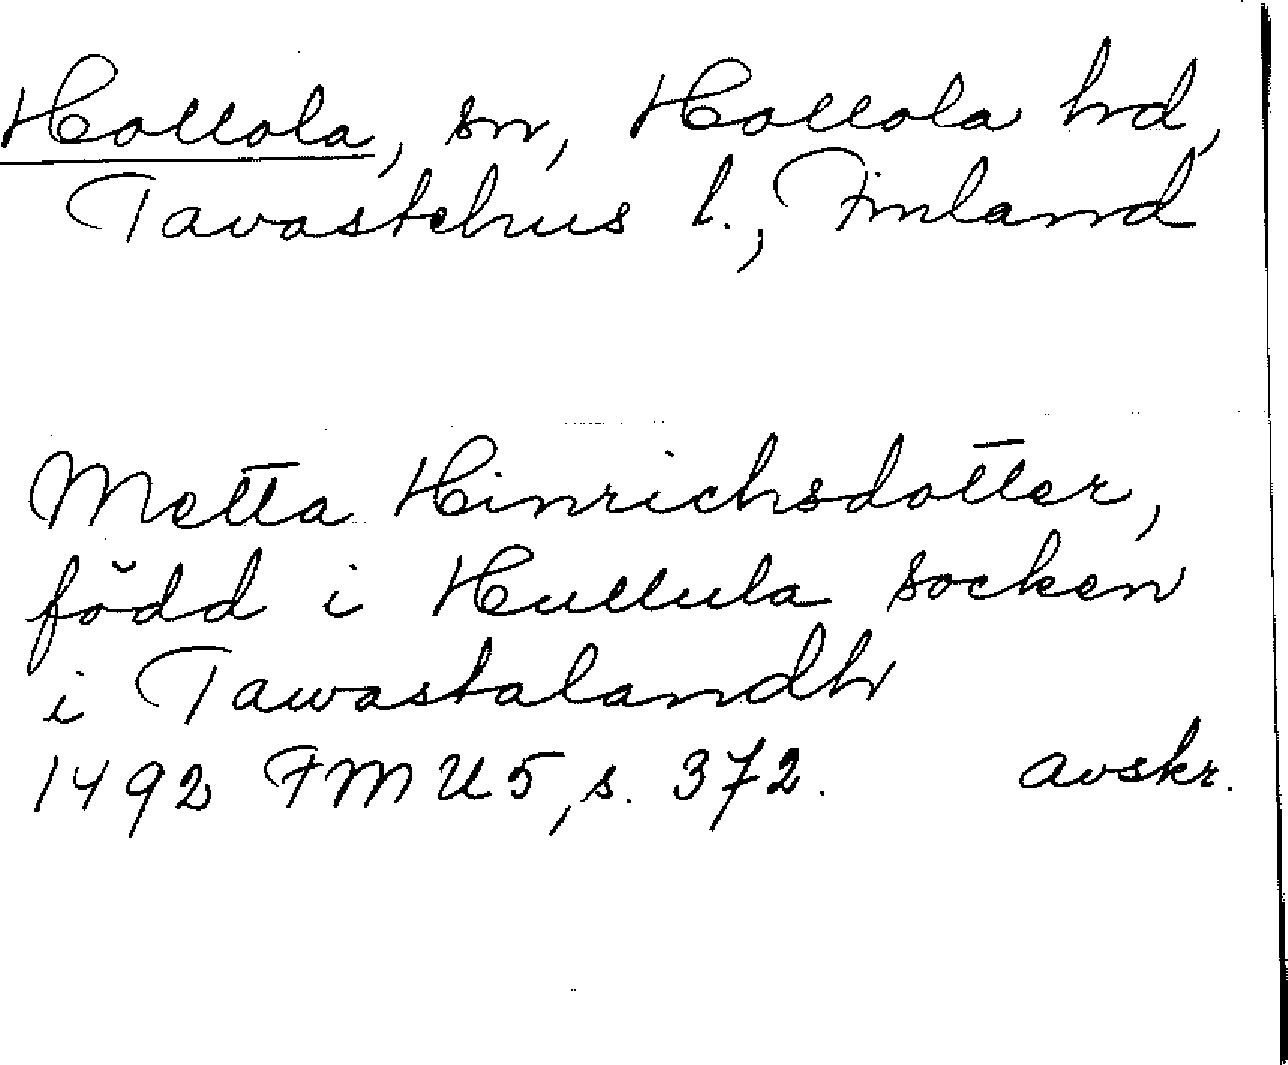 Hollola, sn, Hollola hd,
Tavastehus l., Finland
Metta Hinrichsdotter,
född i Hullula socken
i Tawastalandh
1492 FMU 5, s. 372. avskr.